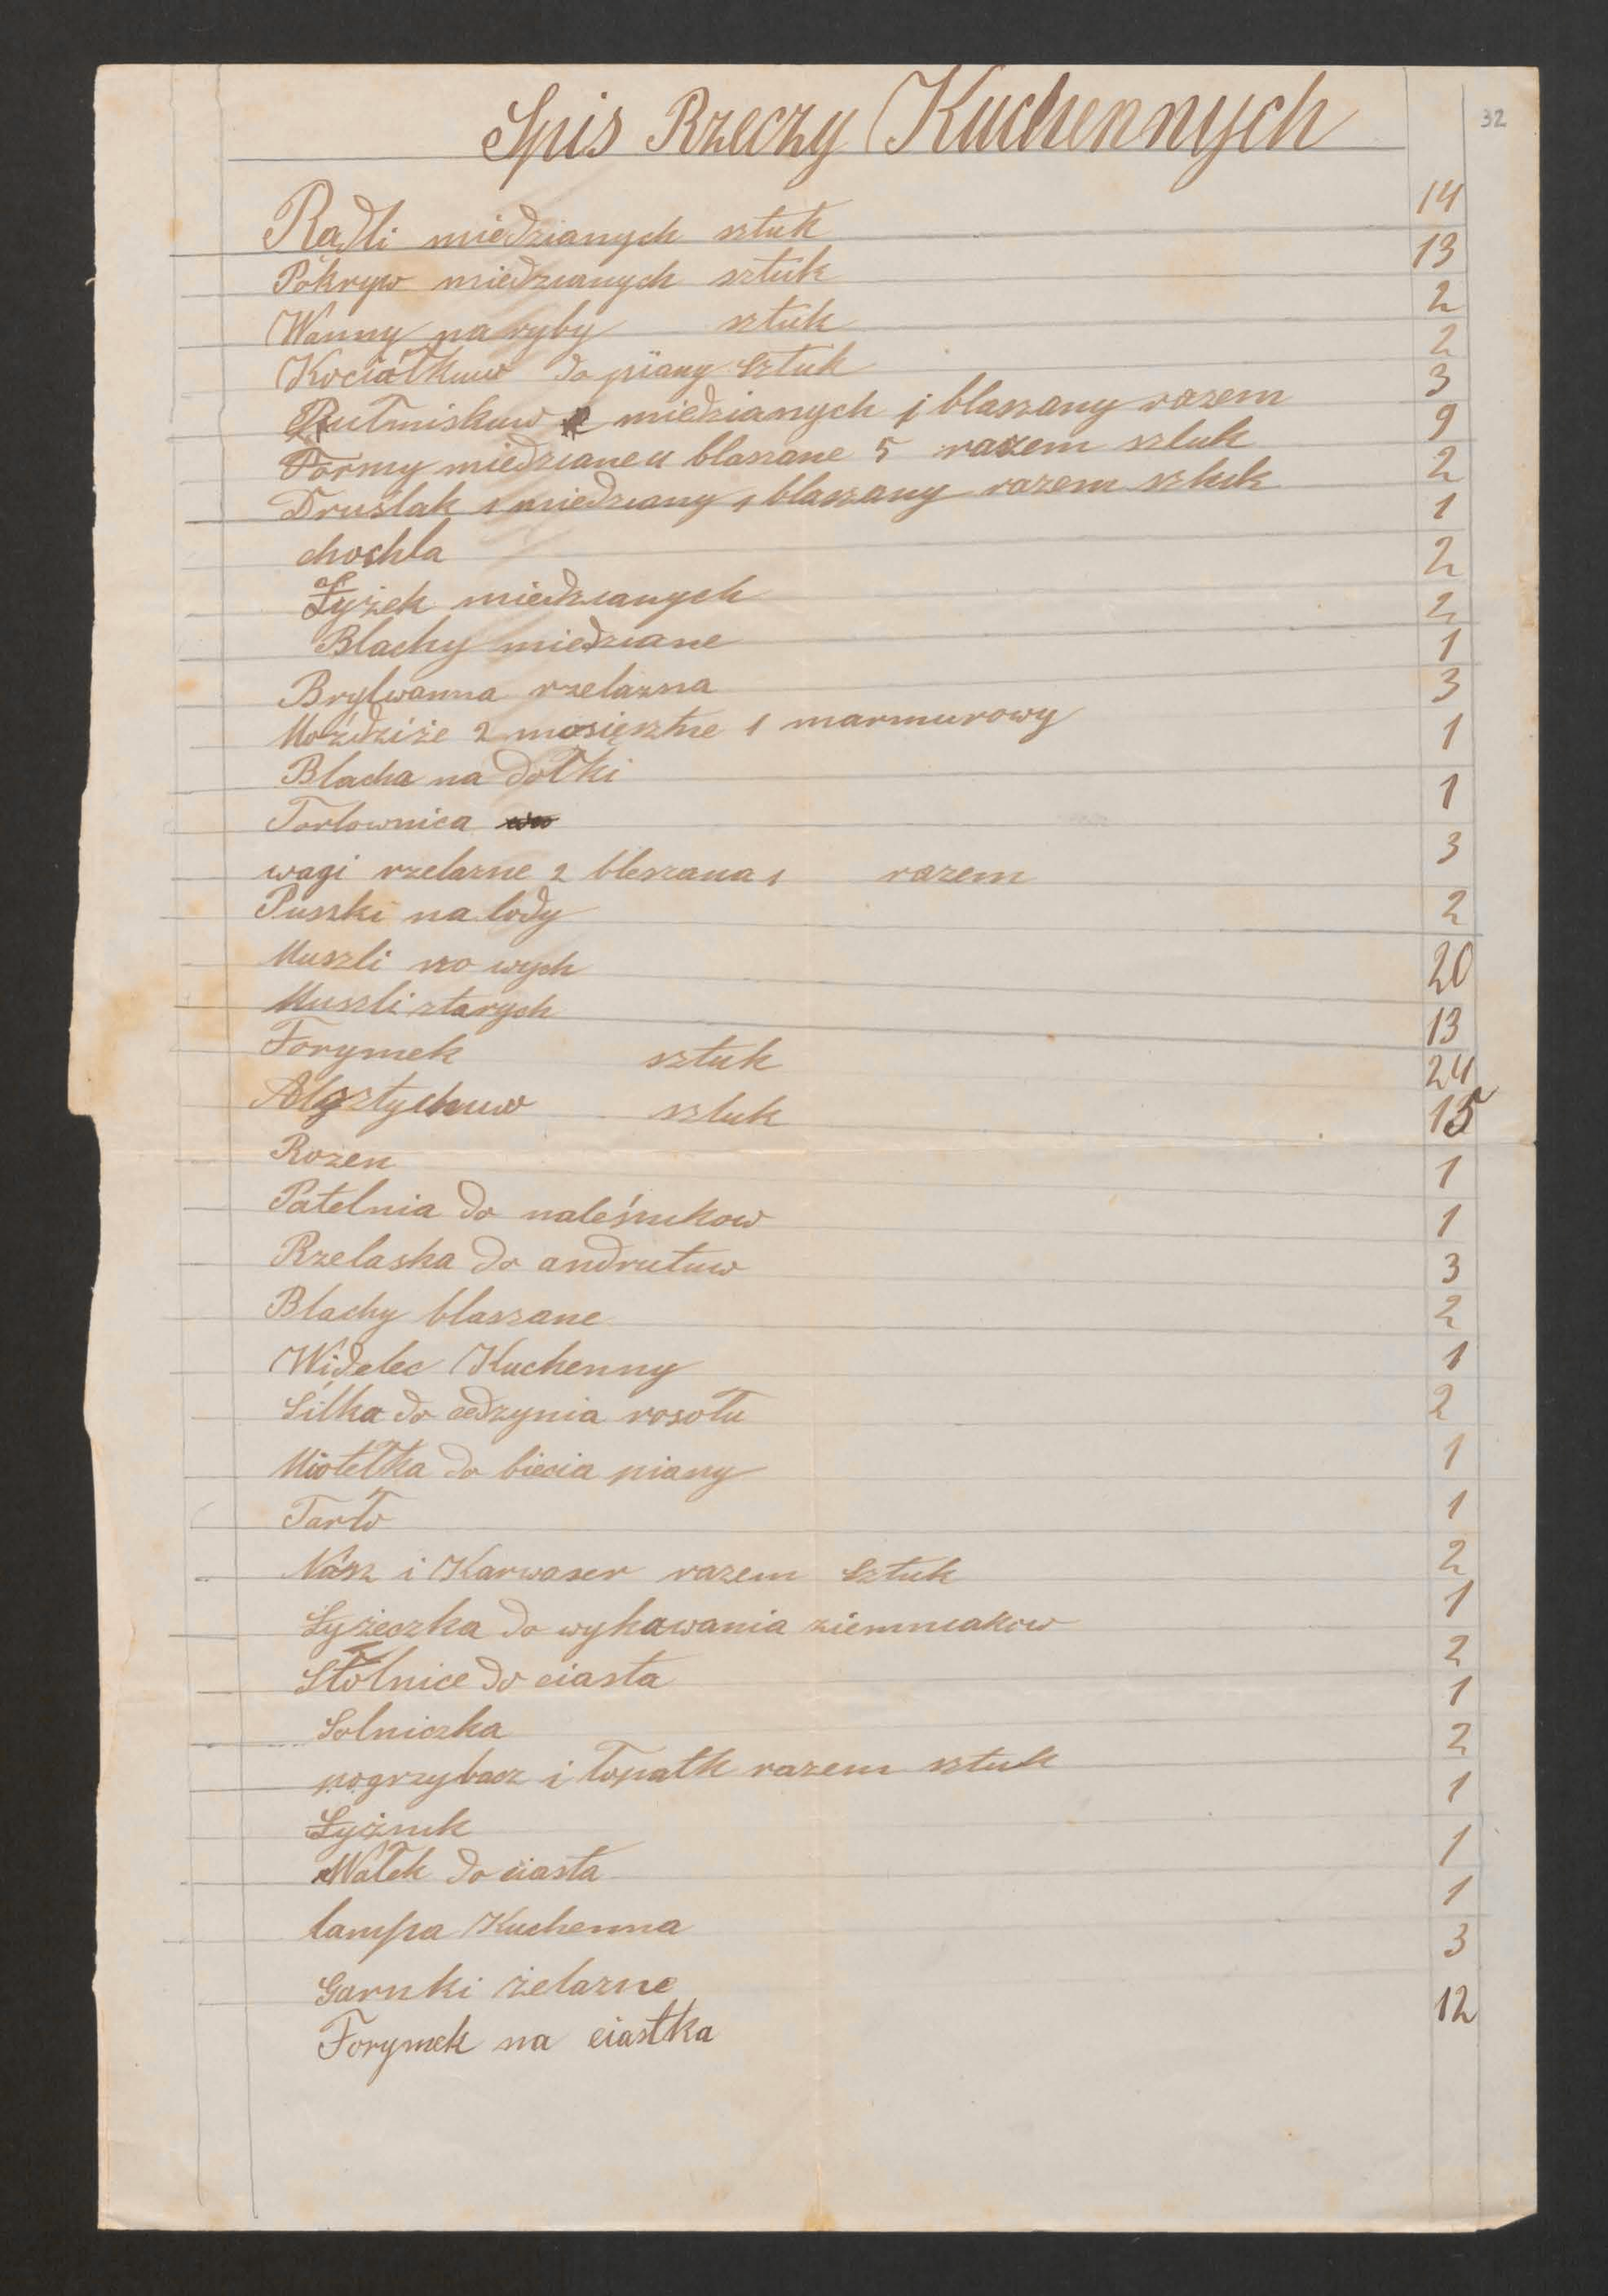 32
Spis Rzeczy Kuchennych
Rądli miedzianych sztuk 14
Pokryw miedzianych sztuk 13
Wanny na ryby sztuk 2
Kociołkuw do piany sztuk 2
miedzianych i blaszany razem 3
Formy miedziane 4 blaszane 5 razem sztuk 9
Druślak 1 miedziany 1 blaszany razem sztuk 2
chochla 1
Łyżek miedzianych 2
Blachy miedziane 2
Brytwanna rzelazna 1
Moździże 2 mosięrzne 1 marmurowy 3
Blacha na dołki 1
Tortownica 1
wagi rzelazne 2 bleszana 1 razem 3
Puszki na lody 2
Muszli no wych 20
Muszli starych 13
Forymek sztuk 24
sztuk 15
Rozen 1
Patelnia do naleśnikow 1
Rzelaska do andrutuw 3
Blachy blaszane 2
Widelec Kuchenny 1
Sitka do cedzynia rosołu 2
Miotełka do biecia piany 1
Tarło 1
Nósz i Karwaser razem sztuk 2
Łyżeczka do wykawania ziemniakow 1
Stolnice do ciasta 2
Solniczka 1
pogrzybacz i łopatk razem sztuk 2
Łyżnik 1
Wałek do ciasta 1
lampa Kuchenna 1
Garnki żelazne 3
Forymek na ciastka 12